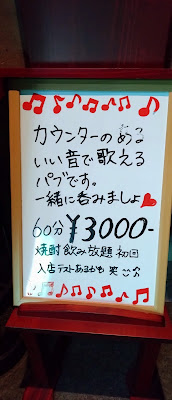 カウンターのある
いい音で歌える
パブです。
一緒に呑みましょ♥
60分¥3000-
焼酎飲み放題 初回
入店テストあるかも 笑